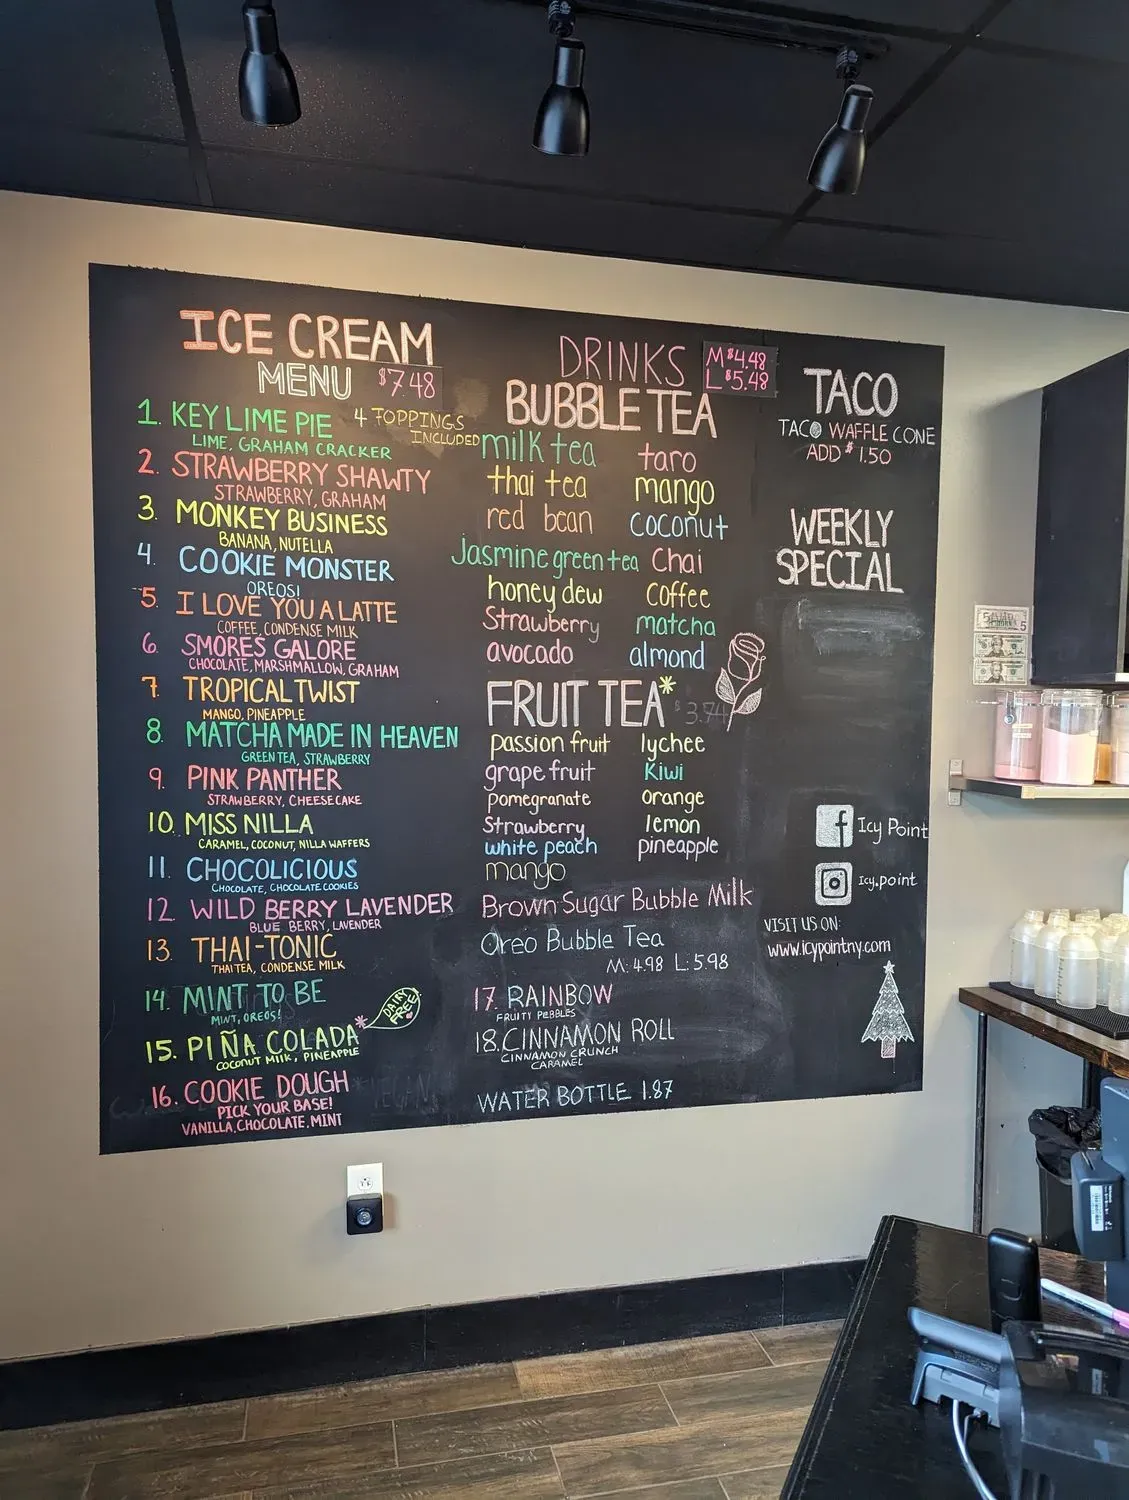 ICE CREAM
MENU $7.48
4 TOPPINGS
INCLUDED
1. KEY LIME PIE
LIME, GRAHAM CRACKER
2. STRAWBERRY SHAWTY
STRAWBERRY, GRAHAM
3. MONKEY BUSINESS
BANANA, NUTELLA
4. COOKIE MONSTER
OREOS!
5. I LOVE YOU A LATTE
COFFEE, CONDENSE MILK
6. SMORES GALORE
CHOCOLATE, MARSHMALLOW, GRAHAM
7. TROPICAL TWIST
MANGO, PINEAPPLE
8. MATCHA MADE IN HEAVEN
GREEN TEA, STRAWBERRY
9. PINK PANTHER
STRAWBERRY, CHEESECAKE
10. MISS NILLA
CARAMEL, COCONUT, NILLA WAFFERS
11. CHOCOLICIOUS
CHOCOLATE, CHOCOLATE COOKIES
12. WILD BERRY LAVENDER
BLUE BERRY, LAVENDER
13. THAI-TONIC
THAI TEA, CONDENSE MILK
14. MINT TO BE
MINT, OREOS!
15. PIÑA COLADA*
COCONUT MILK, PINEAPPLE
DAIRY
FREE
16. COOKIE DOUGH
PICK YOUR BASE!
VANILLA, CHOCOLATE, MINT
DRINKS
M $4.48
L $5.48
BUBBLE TEA
milk tea taro
thai tea mango
red bean coconut
Jasmine green tea Chai
honey dew coffee
Strawberry matcha
avocado almond
FRUIT TEA* $3.74
passion fruit lychee
grape fruit Kiwi
pomegranate orange
Strawberry lemon
white peach pineapple
mango
Brown Sugar Bubble Milk
Oreo Bubble Tea
M: 4.98 L: 5.98
17. RAINBOW
FRUITY PEBBLES
18. CINNAMON ROLL
CINNAMON CRUNCH
CARAMEL
WATER BOTTLE 1.87
TACO
TACO WAFFLE CONE
ADD $1.50
WEEKLY
SPECIAL
f Icy Point
Icy.point
VISIT US ON:
www.icypointny.com